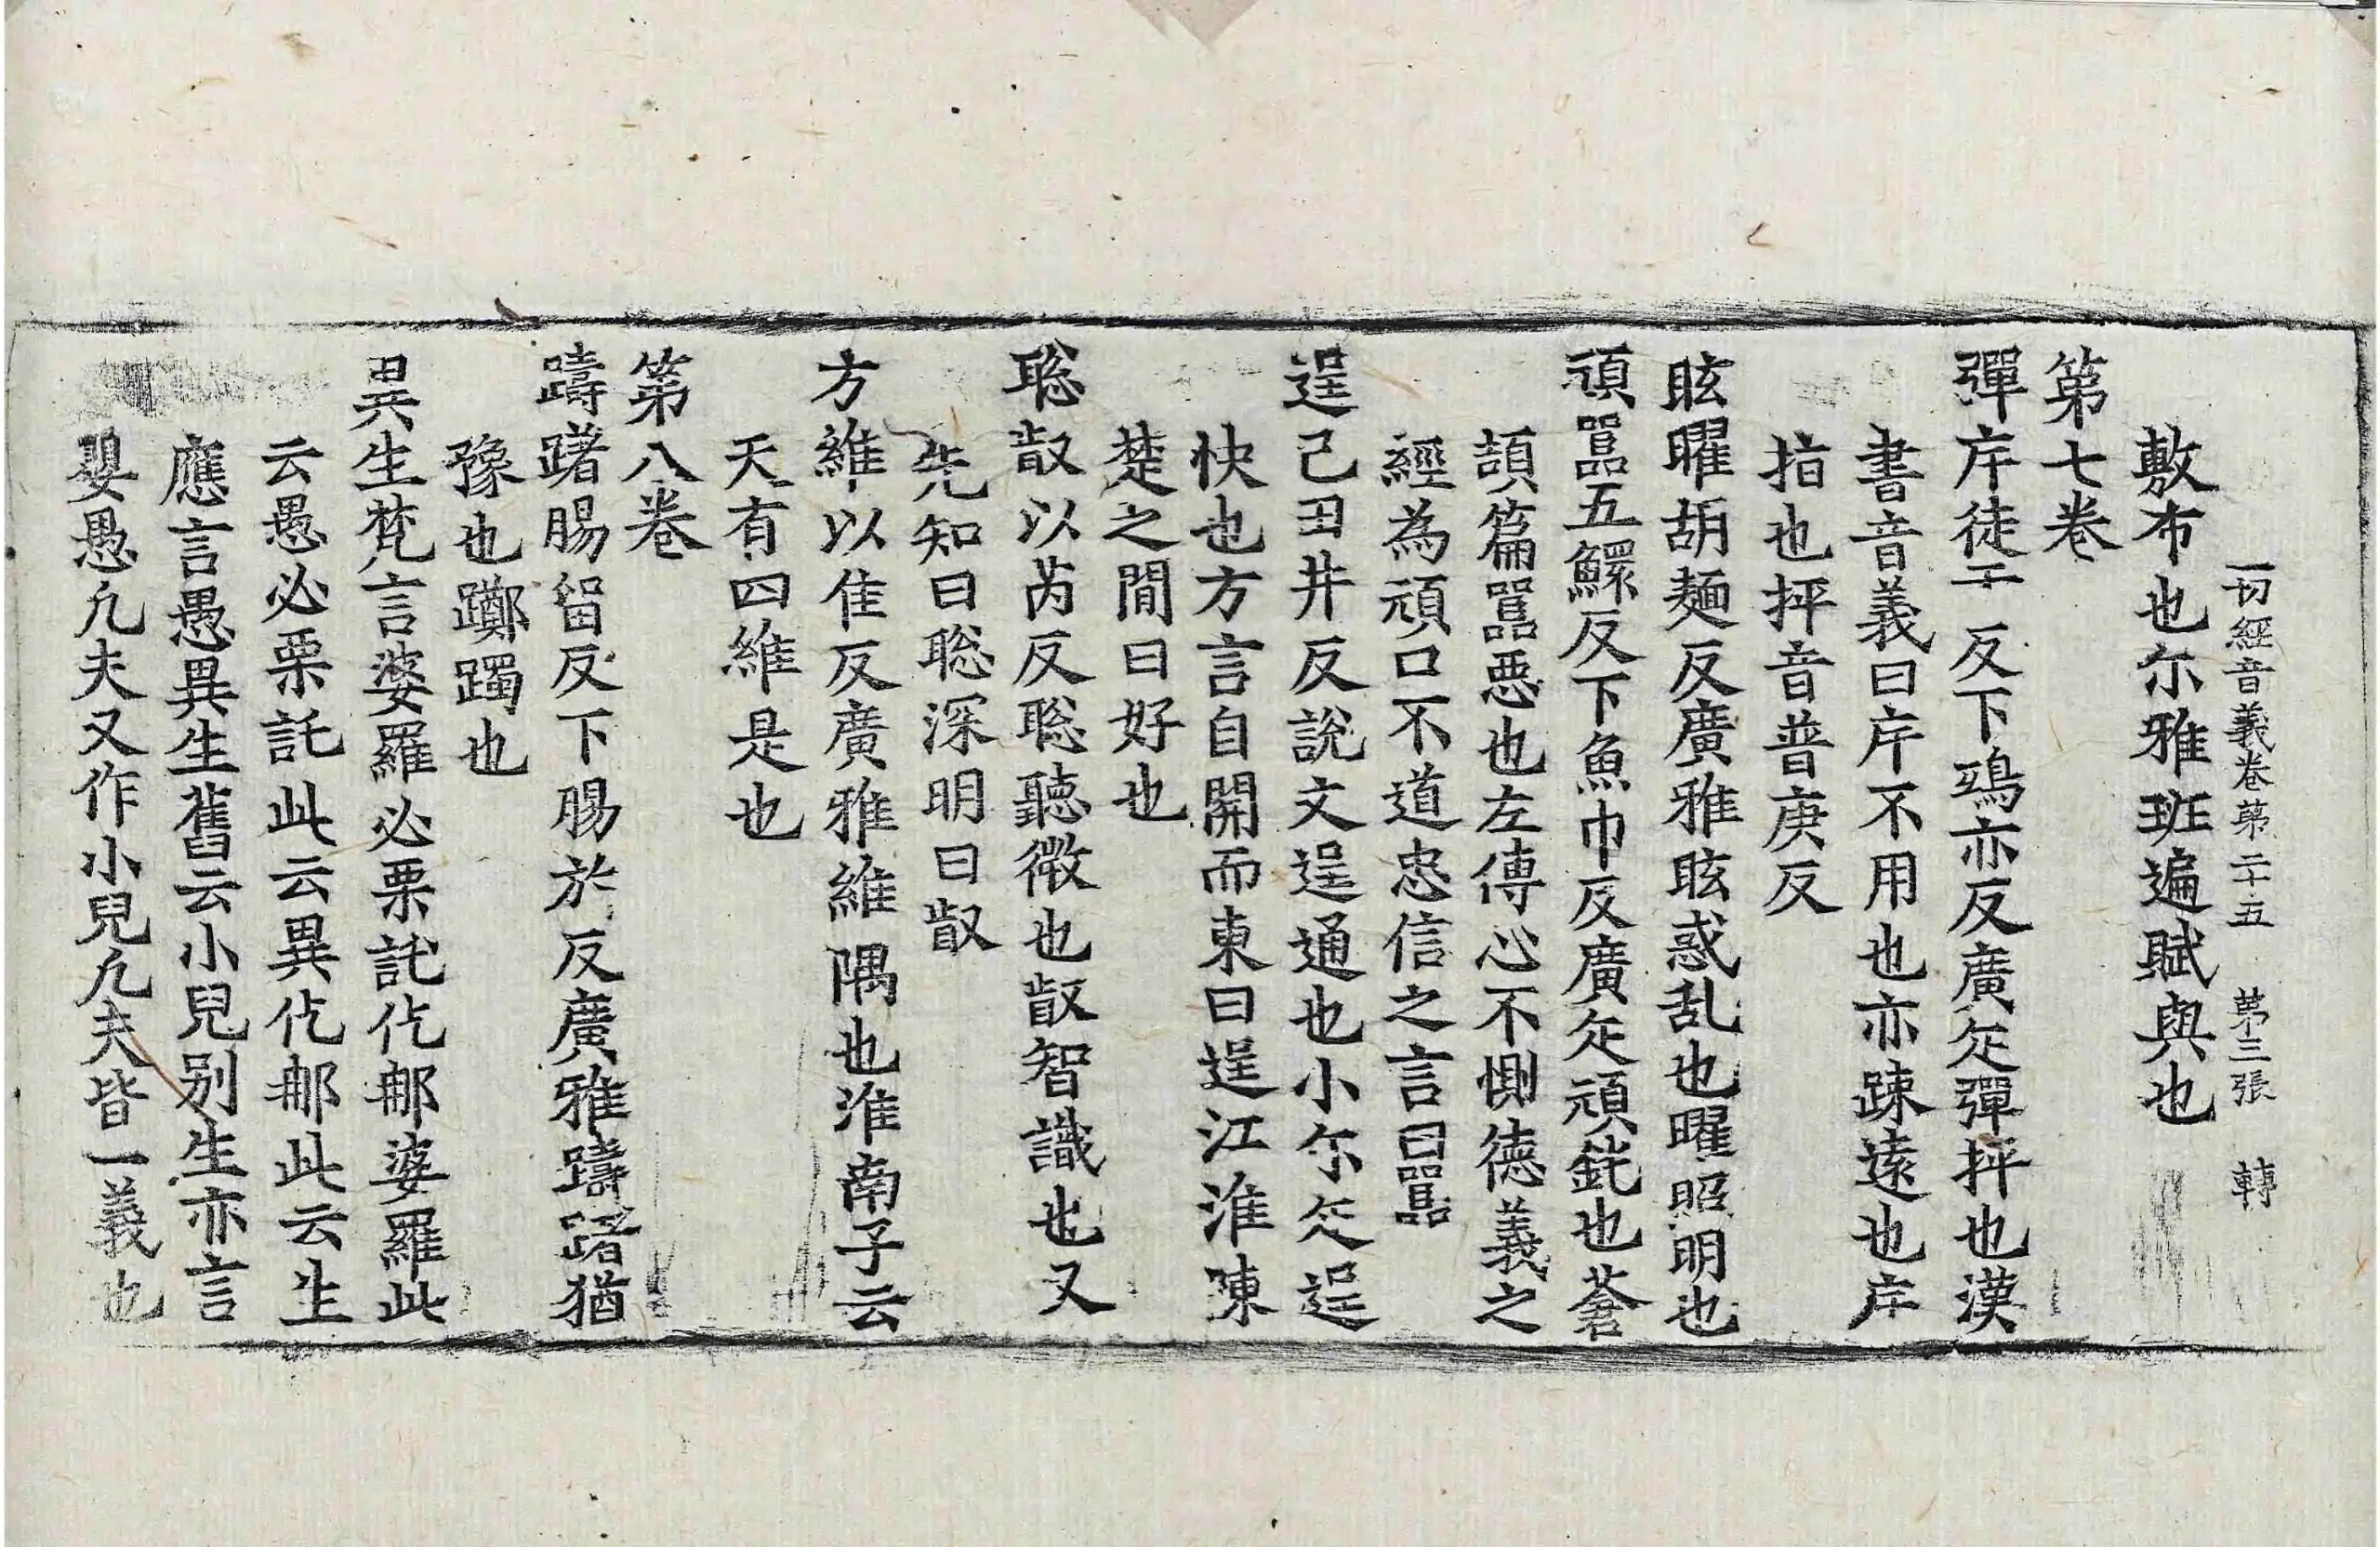 一切經音義卷苐二十五　苐三張　轉
敷布也尓雅班遍賦與也
苐七卷
彈斥徒干反下鵶亦反廣疋彈抨也漢
書音義曰斥不用也亦疎遠也斥
指也抨音普庚反
眩曜胡麵反廣雅眩惑乱也曜照明也
頑嚚五鰥反下魚巾反廣疋頑鈍也蒼
頡篇嚚惡也左傳心不惻德義之
經為頑口不道忠信之言曰嚚
逞己丑井反說文逞通也小尓疋逞
快也方言自關而東曰逞江淮陳
楚之間曰好也
聡叡以芮反聡聽微也叡智識也又
先知曰聡深明曰叡
方維以隹反廣雅維隅也淮南子云
天有四維是也
苐八卷
躊躇腸留反下腸於反廣雅躊躇猶
豫也躑躅也
異生梵言婆羅必栗託仡那婆羅此
云愚必栗託此云異仡那此云生
應言愚異生舊云小兒别生亦言
嬰愚凢夫又作小兒凢夫皆一義也